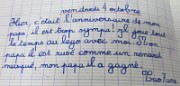 vendredi 4 octobre
Hier, c'était l'anniversaire de mon
papa il est trop sympa. Il joue tout
le temps au lego avec moi. Mon
papa il est rusé comme un renard
masqué, mon papa il a gagné.
7 ans